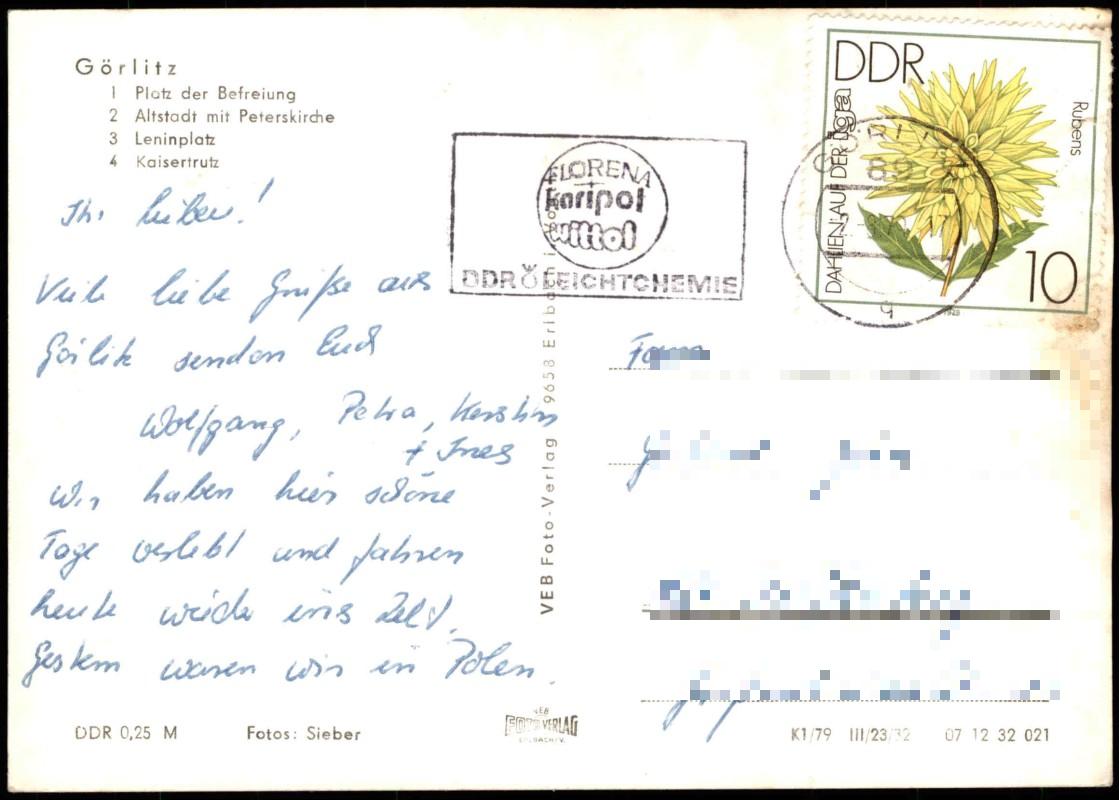 Görlitz
1 Platz der Befreiung
2 Altstadt mit Peterskirche
3 Leninplatz
4 Kaisertrutz
Ihr Lieben!
Viele liebe Grüße aus
Görlitz senden Euch
Wolfgang, Petra, Kerstin
+ Ines
Wir haben hier schöne
Tage verlebt und fahren
heute wieder ins Zelt.
Gestern waren wir in Polen.
DDR 0,25 M
Fotos: Sieber
VEB Foto-Verlag 9658 Erlbach i.
VEB
FOTO VERLAG
ERLBACH/V.
FLORENA
Karipol
wittol
DDR LEICHTCHEMIE
DDR
DAHLIEN AUF DER iga
Rubens
10
K1/79 III/23/32 07 12 32 021